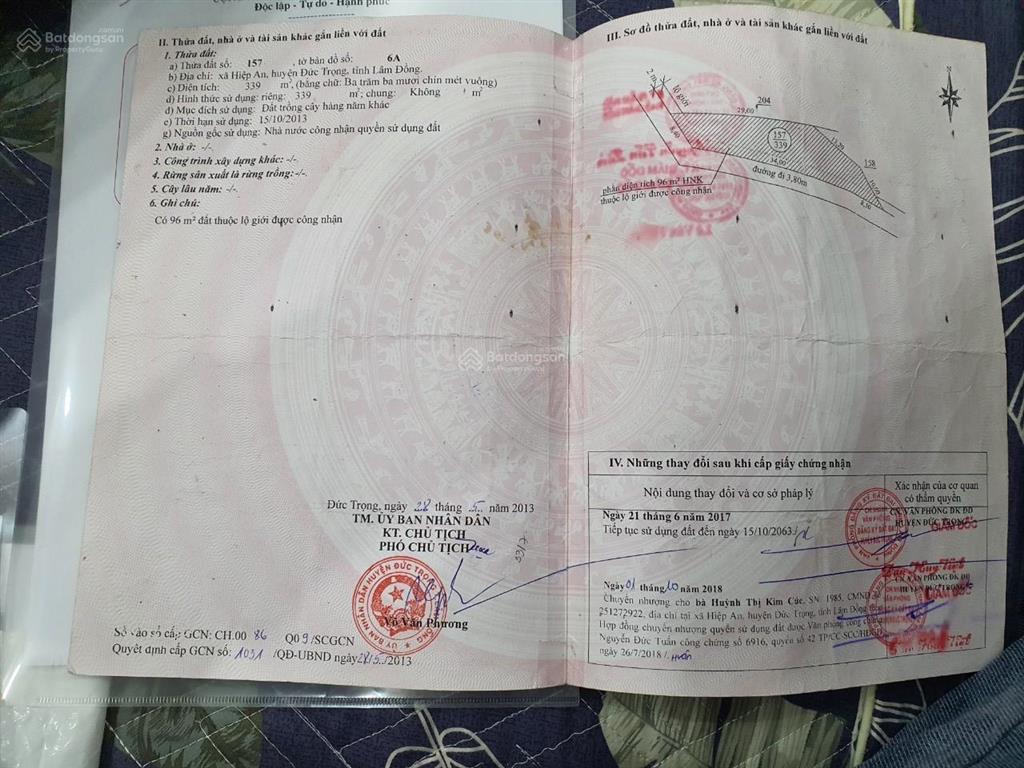 Độc lập - Tự do - Hạnh phúc
Batdongsan
by PropertyGuru
II. Thửa đất, nhà ở và tài sản khác gắn liền với đất
1. Thửa đất:
a) Thửa đất số: 157 , tờ bản đồ số: 6A
b) Địa chỉ: xã Hiệp An, huyện Đức Trọng, tỉnh Lâm Đồng.
c) Diện tích: 339 m², (bằng chữ: Ba trăm ba mươi chín mét vuông)
d) Hình thức sử dụng: riêng: 339 m²; chung: Không m²
đ) Mục đích sử dụng: Đất trồng cây hàng năm khác
e) Thời hạn sử dụng: 15/10/2013
g) Nguồn gốc sử dụng: Nhà nước công nhận quyền sử dụng đất
2. Nhà ở: -/-
3. Công trình xây dựng khác: -/-
4. Rừng sản xuất là rừng trồng: -/-
5. Cây lâu năm: -/-
6. Ghi chú:
Có 96 m² đất thuộc lộ giới được công nhận
Đức Trọng, ngày 28 tháng 5 năm 2013
TM. ỦY BAN NHÂN DÂN
KT. CHỦ TỊCH
PHÓ CHỦ TỊCH
Võ Văn Phương
Số vào sổ cấp GCN: CH.00 86 Q09/SCGCN
Quyết định cấp GCN số: 1091 /QĐ-UBND ngày 28/5/2013
III. Sơ đồ thửa đất, nhà ở và tài sản khác gắn liền với đất
2 m
lộ giới
204
29,00
8,40
157
339
158
34,00
đường đi 3,80m
8,50
phần diện tích 96 m² HNK
thuộc lộ giới được công nhận
Batdongsan
by PropertyGuru
IV. Những thay đổi sau khi cấp giấy chứng nhận
Nội dung thay đổi và cơ sở pháp lý
Xác nhận của cơ quan
có thẩm quyền
Ngày 21 tháng 6 năm 2017
Tiếp tục sử dụng đất đến ngày 15/10/2063
CN. VĂN PHÒNG ĐK ĐĐ
HUYỆN ĐỨC TRỌNG
GIÁM ĐỐC
Ngày 01 tháng 10 năm 2018
Chuyển nhượng cho bà Huỳnh Thị Kim Cúc, SN: 1985, CMND
251272922, địa chỉ tại xã Hiệp An, huyện Đức Trọng, tỉnh Lâm Đồng
Hợp đồng chuyển nhượng quyền sử dụng đất được Văn phòng công chứng
Nguyễn Đức Tuấn công chứng số 6916, quyển số 42 TP/CC-SCC/HĐGD
26/7/2018
CN. VĂN PHÒNG ĐK ĐĐ
HUYỆN ĐỨC TRỌNG
GIÁM ĐỐC
Batdongsan
by PropertyGuru